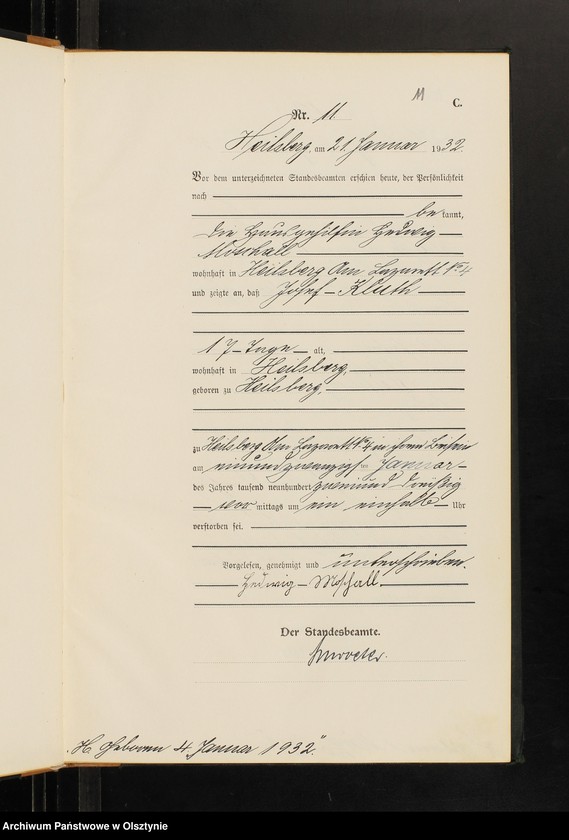 11
C.
Nr. 11
Heilsberg, am 21. Januar 1932.
Vor dem unterzeichneten Standesbeamten erschien heute, der Persönlichkeit
nach
be kannt,
die Hausgehilfin Hedwig
Moschall
wohnhaft in Heilsberg Am Lazarett 4
und zeigte an, daß Josef Kluth
17 Tage alt,
wohnhaft in Heilsberg,
geboren zu Heilsberg,
zu Heilsberg Am Lazarett 4 in ihrem Beisein
am einundzwanzigsten Januar
des Jahres tausend neunhundert zweiunddreißig
vor mittags um ein einhalb Uhr
verstorben sei.
Vorgelesen, genehmigt und unterschrieben.
Hedwig Moschall.
Der Standesbeamte.
H. Geboren 4. Januar 1932."
Archiwum Państwowe w Olsztynie